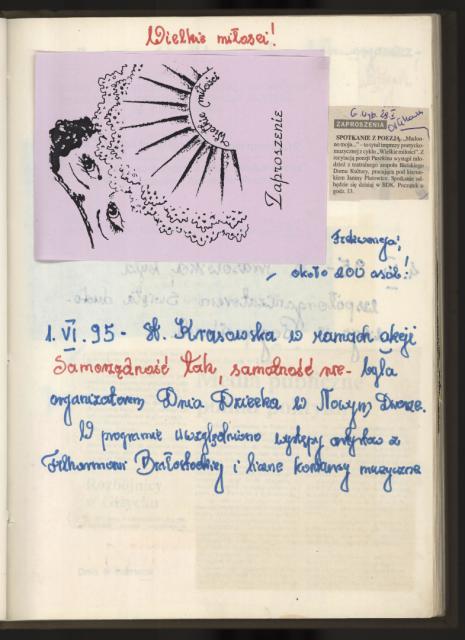 Wielkie miłości!
Wielkie miłości
Zaproszenie
G. Wsp. 28.I
ZAPROSZENIA
SPOTKANIE Z POEZJĄ. „Madon-
no moja...” – to tytuł imprezy poetycko-
muzycznej z cyklu „Wielkie miłości”. Z
recytacją poezji Puszkina wystąpi mło-
dzież z teatralnego zespołu Bielskiego
Domu Kultury, pracująca pod kierun-
kiem Janiny Plutowicz. Spotkanie od-
będzie się dzisiaj w BDK. Początek o
godz. 13.
Frekwencja!
– około 200 osób!
1. VI. 95 - H. Krasowska w ramach akcji
Samorządność tak, samotność nie - była
organizatorem Dnia Dziecka w Nowym Dworze.
W programie uwzględniono występy artystów z
Filharmonii Białostockiej i liczne konkursy muzyczne